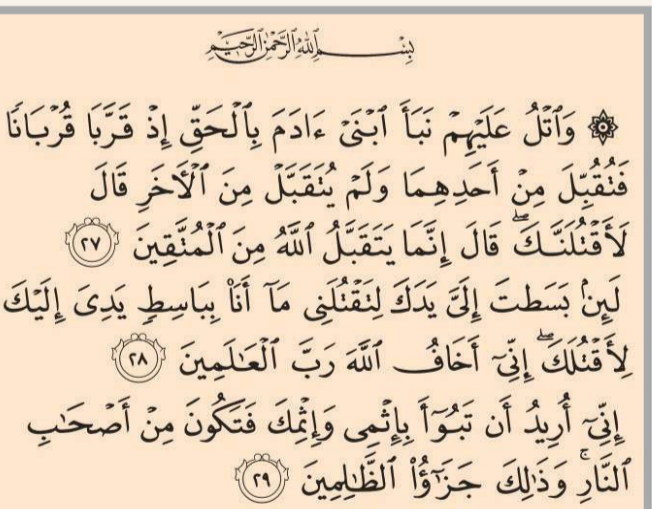 بِسْمِ ٱللَّهِ ٱلرَّحْمَٰنِ ٱلرَّحِيمِ
۞ وَٱتْلُ عَلَيْهِمْ نَبَأَ ٱبْنَىْ ءَادَمَ بِٱلْحَقِّ إِذْ قَرَّبَا قُرْبَانًا
فَتُقُبِّلَ مِنْ أَحَدِهِمَا وَلَمْ يُتَقَبَّلْ مِنَ ٱلْـَٔاخَرِ قَالَ
لَأَقْتُلَنَّكَ ۖ قَالَ إِنَّمَا يَتَقَبَّلُ ٱللَّهُ مِنَ ٱلْمُتَّقِينَ ٢٧
لَئِنۢ بَسَطتَ إِلَىَّ يَدَكَ لِتَقْتُلَنِى مَآ أَنَا۠ بِبَاسِطٍ يَدِىَ إِلَيْكَ
لِأَقْتُلَكَ ۖ إِنِّىٓ أَخَافُ ٱللَّهَ رَبَّ ٱلْعَـٰلَمِينَ ٢٨
إِنِّىٓ أُرِيدُ أَن تَبُوٓأَ بِإِثْمِى وَإِثْمِكَ فَتَكُونَ مِنْ أَصْحَـٰبِ
ٱلنَّارِ ۚ وَذَٰلِكَ جَزَٰٓؤُا۟ ٱلظَّـٰلِمِينَ ٢٩